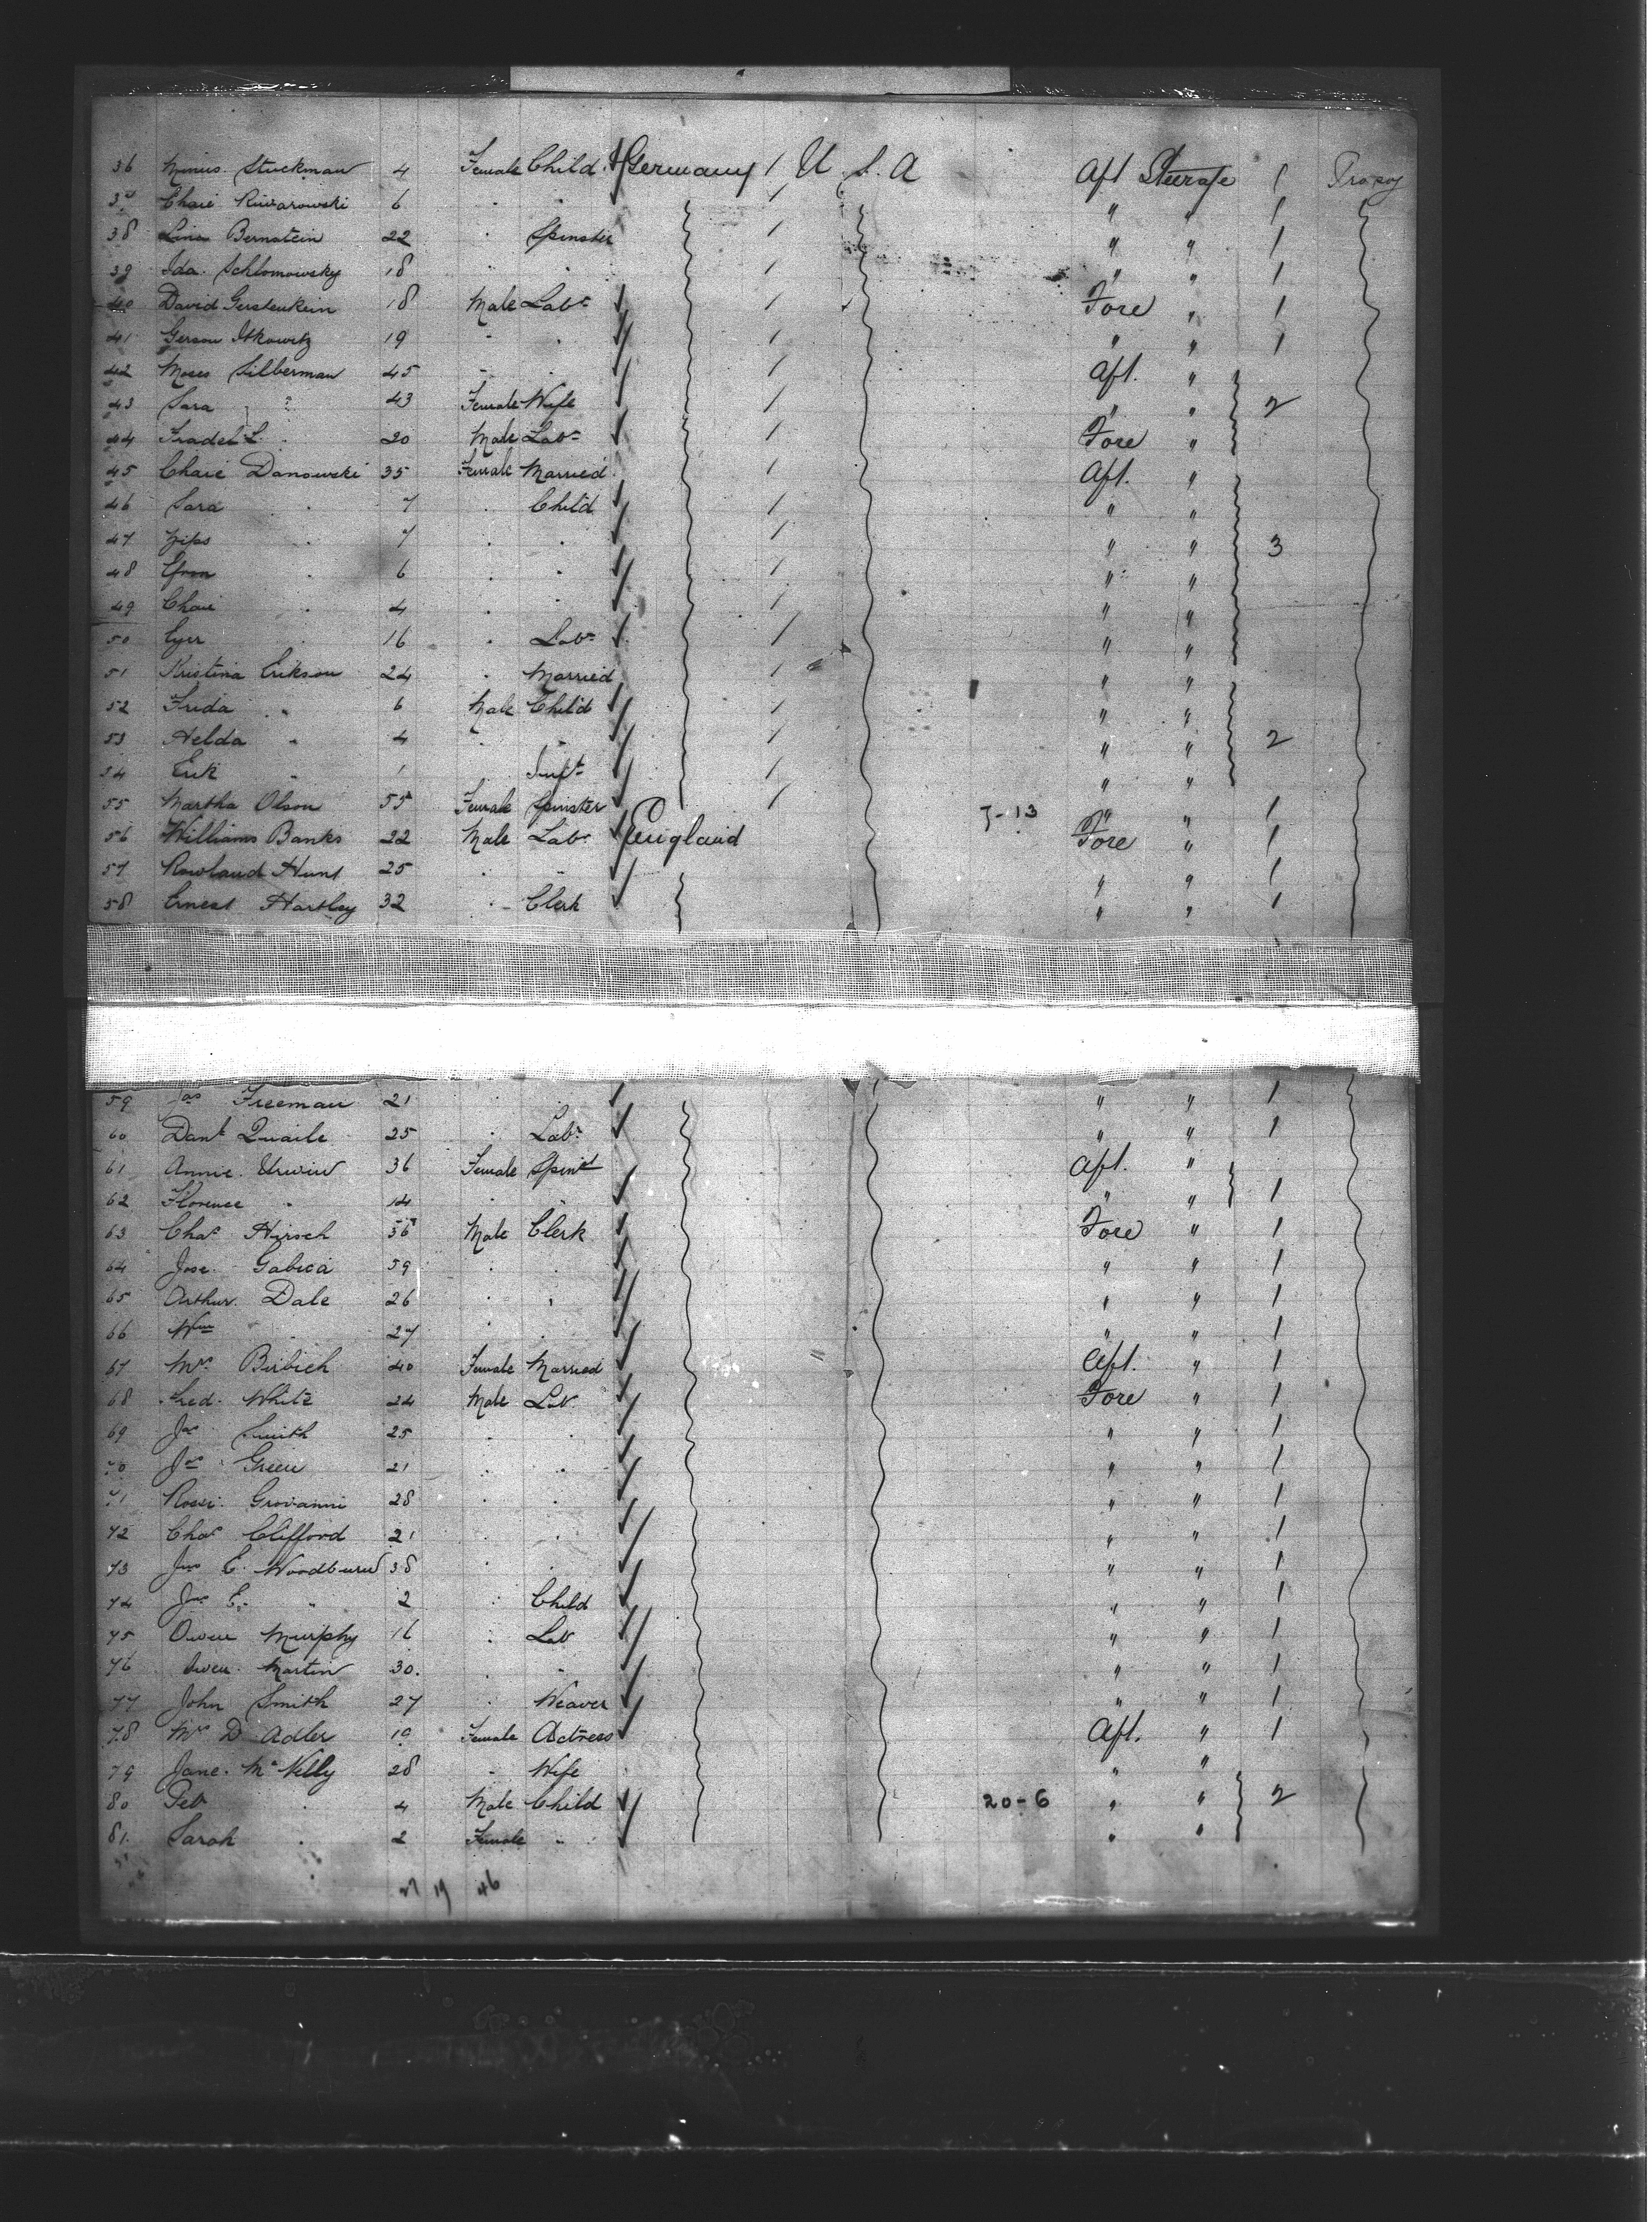 36 Minus. Stuckman 4 Female Child Germany 1 U. S. A Aft Steerage 1
37 Chaie Ruvarowski 6 " " / " " 1
38 Lina Bernstein 22 " Spinster / " " 1
39 Ida. Schlomowsky 18 " " / " " 1
40 David Gerstenkein 18 Male Labr / Fore " 1
41 Gerson Itkowitz 19 " " / " " 1
42 Moses Silberman 45 " " / Aft. "
43 Sara " 43 Female Wife / " " 2
44 Fradel L. " 20 Male Labr / Fore "
45 Chaie Danowski 35 Female Married / Aft. "
46 Sara " 7 " Child / " "
47 " 7 " " / " " 3
48 Efron " 6 " " / " "
49 Chaie " 4 " " / " "
50 " 16 " Labr / " "
51 Kristina Erikson 24 " Married / " "
52 Frida " 6 Male Child / " "
53 Helda " 4 " " / " " 2
54 Erik " 1 Inft / " "
55 Martha Olson 55 Female Spinster / " " 1
56 Williams Banks 22 Male Labr England 5-13 Fore " 1
57 Rowland Hunt 25 " " " " 1
58 Ernest Hartley 32 " Clerk " " 1
59 Jas Freeman 21 " " " " 1
60 Danl Quaile 25 " Labr " " 1
61 Annie. Urwin 36 Female Spinst Aft. "
62 Florence " 14 " " " " 1
63 Chas Hirsch 56 Male Clerk Fore " 1
64 Jose. Gabica 59 " " " " 1
65 Arthur. Dale 26 " " " " 1
66 Wm " 27 " " " " 1
67 Mrs Birbich 40 Female Married Aft. " 1
68 Fred. White 24 Male Lab Fore " 1
69 Jas Smith 25 " " " " 1
70 Jas Green 21 " " " " 1
71 Rossi. Grovanni 28 " " " " 1
72 Chas Clifford 21 " " " " 1
73 Jno E. Woodburn 38 " " " " 1
74 Jno E. " 2 " Child " " 1
75 Owen Murphy 16 " Lab " " 1
76 Owen. Martin 30. " " " " 1
77 John Smith 27 " Weaver " " 1
78 Mrs D Adler 19 Female Actress Aft. " 1
79 Jane. McNelly 28 " Wife " "
80 Petr " 4 Male Child 20-6 " " 2
81. Sarah " 2 Female " " "
19 46